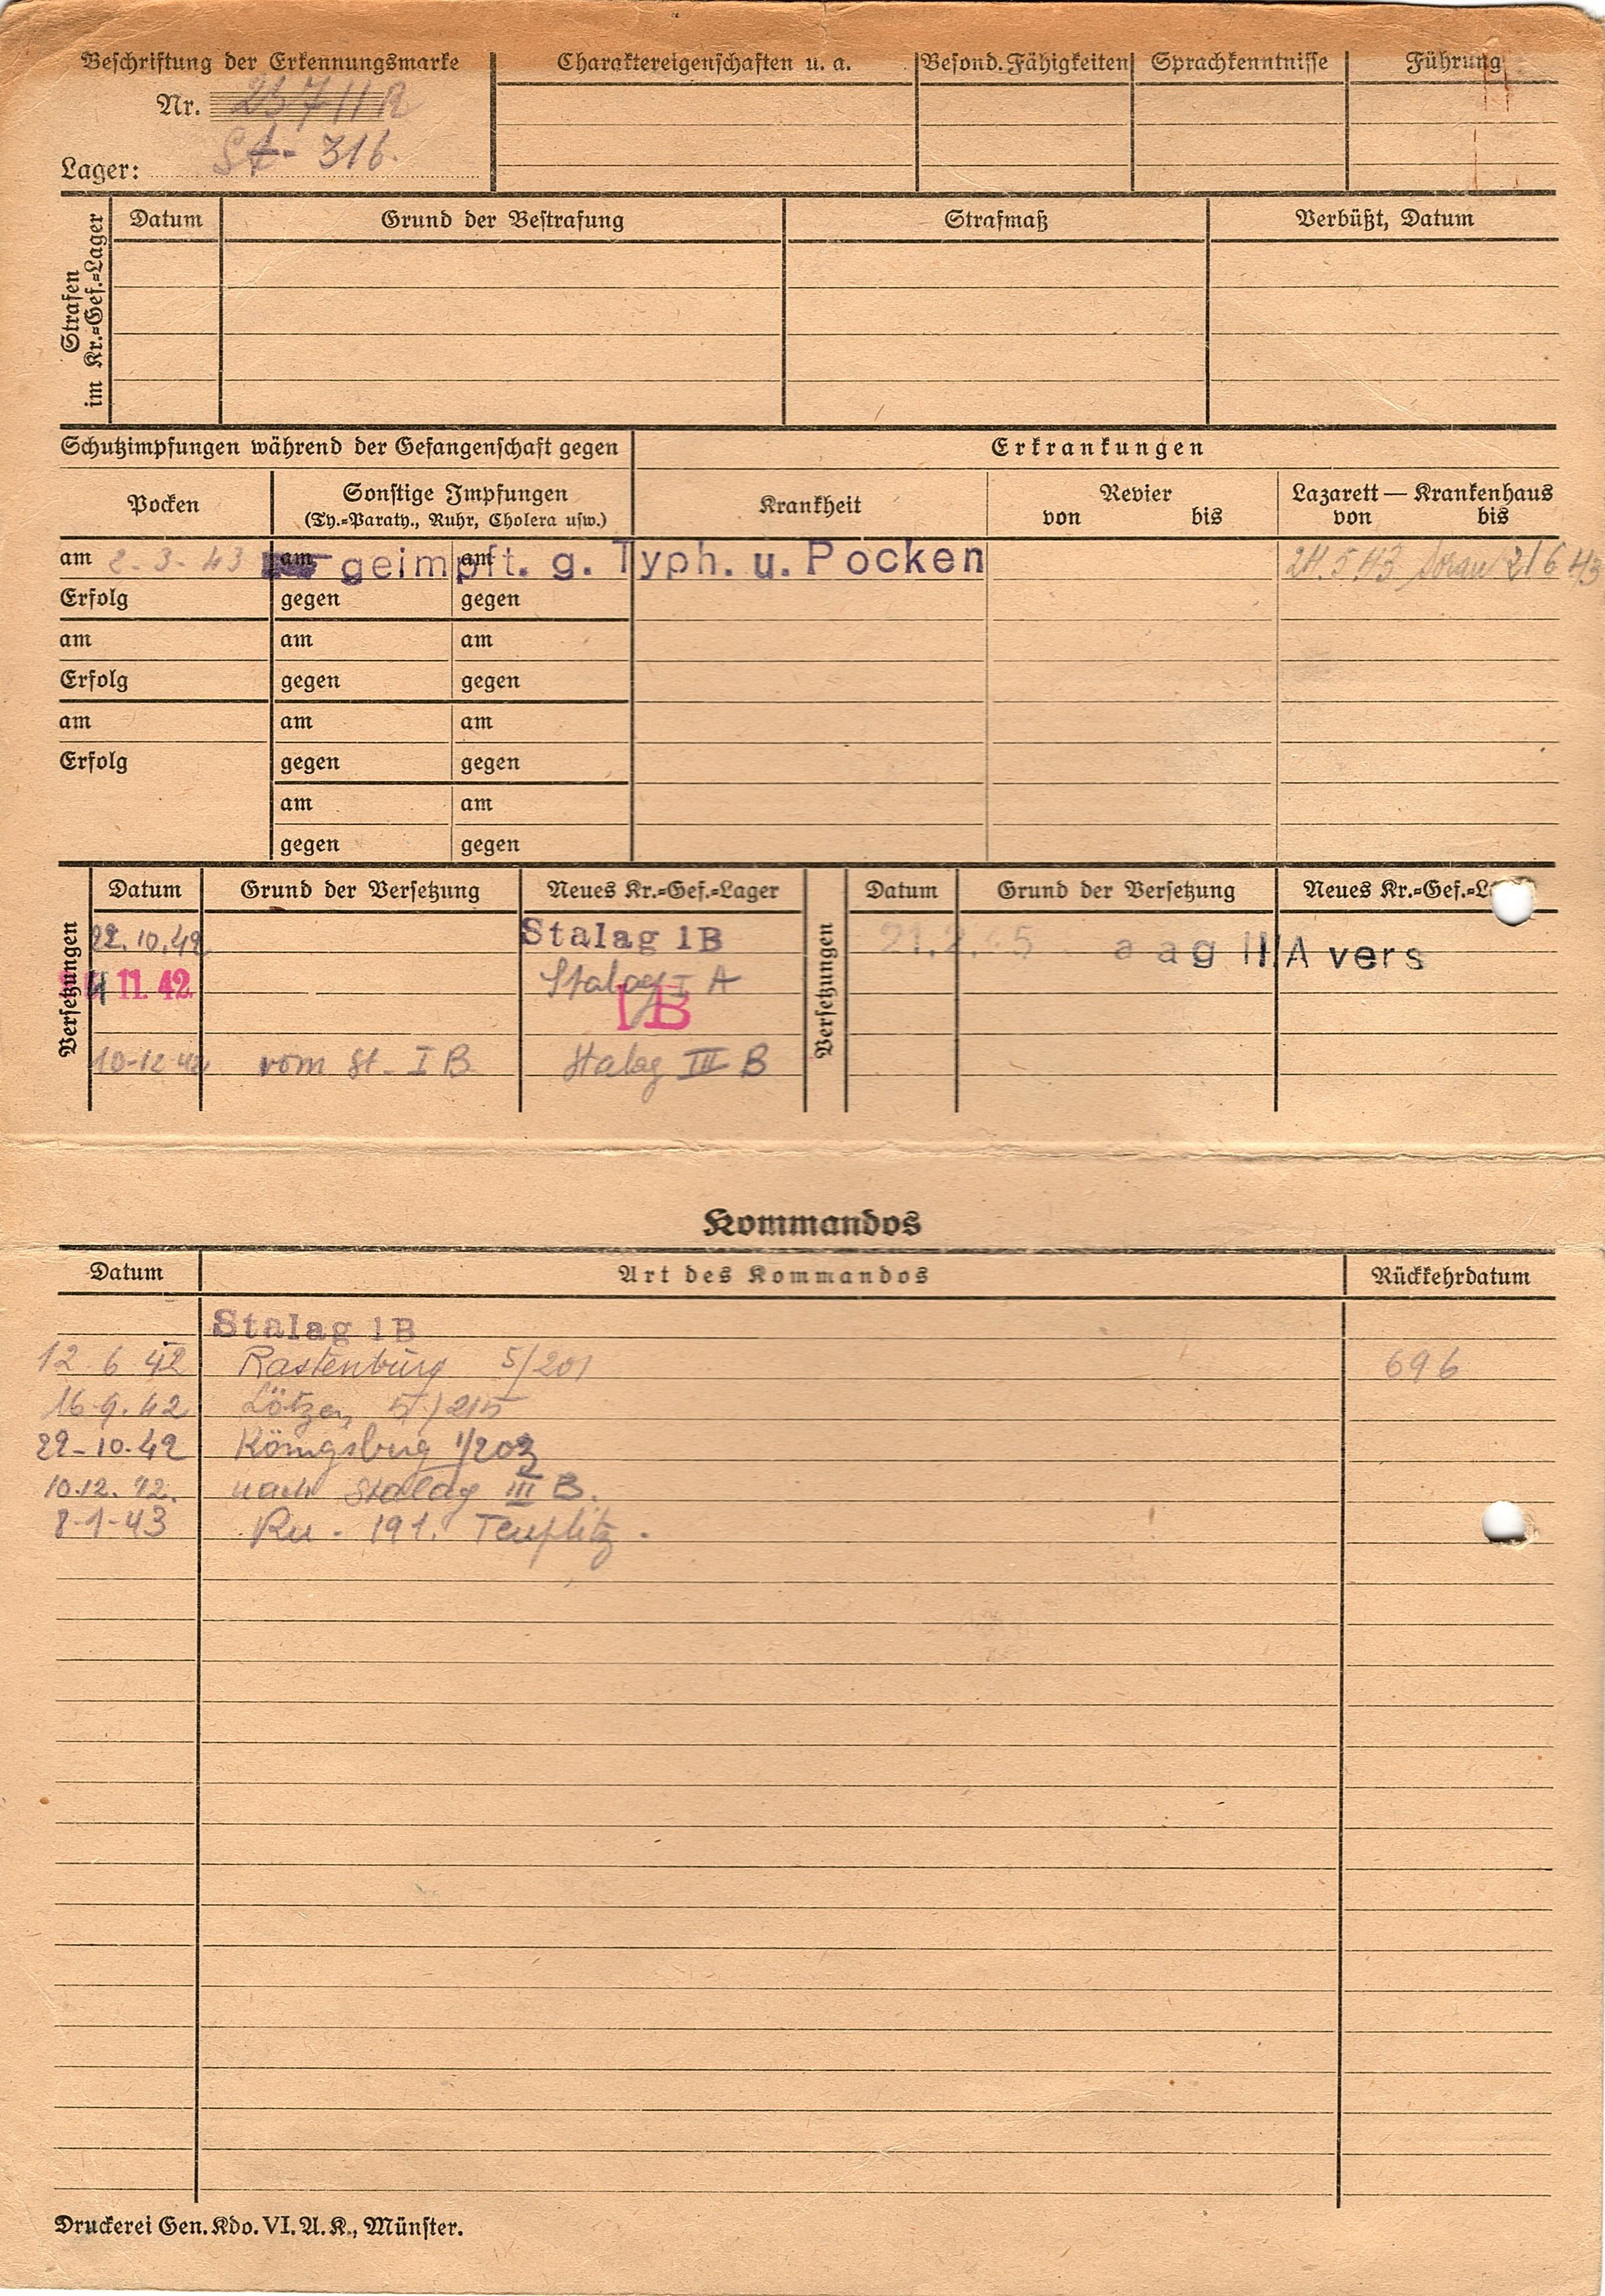 Beschriftung der Erkennungsmarke
Nr.
Lager: St. 316.
Charaktereigenschaften u. a.
Besond. Fähigkeiten
Sprachkenntnisse
Führung
Strafen im Kr.=Gef.=Lager
Datum Grund der Bestrafung Strafmaß Verbüßt, Datum
Schutzimpfungen während der Gefangenschaft gegen
Erkrankungen
Pocken
Sonstige Impfungen
(Ty.=Paraty., Ruhr, Cholera usw.)
Krankheit
Revier
von bis
Lazarett — Krankenhaus
von bis
am 2-3-43 am am geimpft. g. Typh. u. Pocken 24.5.43 Sorau 21 6 43
Erfolg gegen gegen
am am am
Erfolg gegen gegen
am am am
Erfolg gegen gegen
am am
gegen gegen
Versetzungen
Datum Grund der Versetzung Neues Kr.=Gef.=Lager
22.10.42 Stalag 1B
11. 42 Stalag I A
IB
10-12 42 vom St. I B Stalag III B
Versetzungen
Datum Grund der Versetzung Neues Kr.=Gef.=L
21.2. 5 a ag III A vers
Kommandos
Datum Art des Kommandos Rückkehrdatum
Stalag 1B
12 6 42 Rastenburg 5/201 696
16.9.42 Lötzen 5/215
22-10-42 Königsberg 1/203
10.12.42. nach Stalag III B.
8-1-43 Ru. 191. Teuplitz.
Druckerei Gen. Kdo. VI. A. K., Münster.